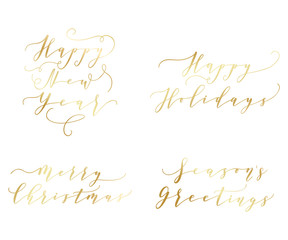 Happy
New
Year
Happy
Holidays
Merry
Christmas
Season's
Greetings